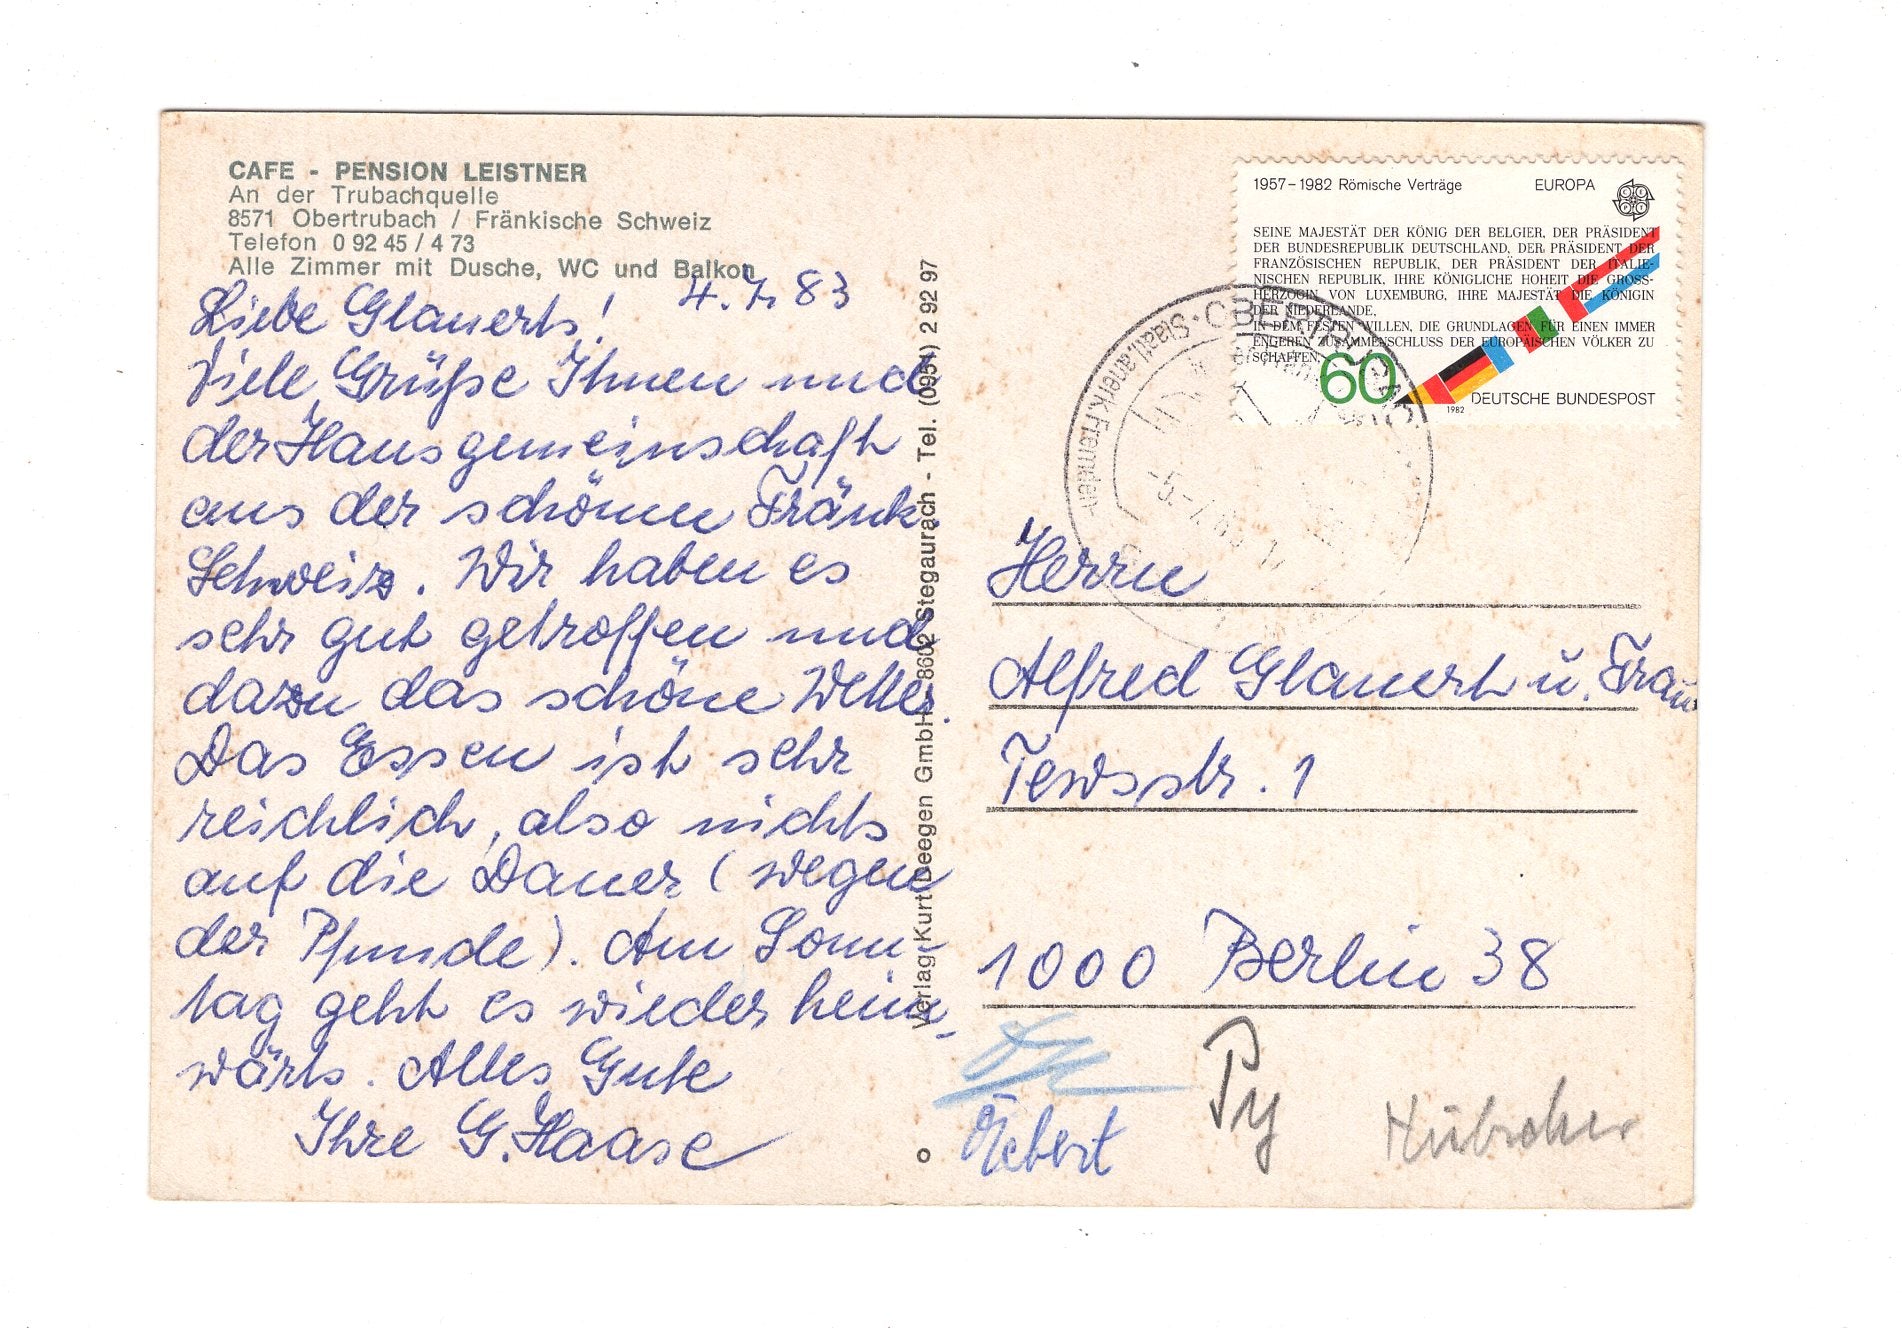 CAFE - PENSION LEISTNER
An der Trubachquelle
8571 Obertrubach / Fränkische Schweiz
Telefon 0 92 45 / 4 73
Alle Zimmer mit Dusche, WC und Balkon
4.7.83
Liebe Glauerts!
Viele Grüße Ihnen und
der Hausgemeinschaft
aus der schönen Fränk.
Schweiz. Wir haben es
sehr gut getroffen und
dazu das schöne Wetter.
Das Essen ist sehr
reichlich, also nichts
auf die Dauer (wegen
der Pfunde). Am Sonn-
tag geht es wieder heim-
wärts. Alles Gute
Ihre G. Haase
Verlag Kurt Deegen GmbH - 8602 Stegaurach - Tel. (0951) 2 92 97
1957–1982 Römische Verträge EUROPA
SEINE MAJESTÄT DER KÖNIG DER BELGIER, DER PRÄSIDENT
DER BUNDESREPUBLIK DEUTSCHLAND, DER PRÄSIDENT DER
FRANZÖSISCHEN REPUBLIK, DER PRÄSIDENT DER ITALIE-
NISCHEN REPUBLIK, IHRE KÖNIGLICHE HOHEIT DIE GROSS-
HERZOGIN VON LUXEMBURG, IHRE MAJESTÄT DIE KÖNIGIN
DER NIEDERLANDE,
IN DEM FESTEN WILLEN, DIE GRUNDLAGEN FÜR EINEN IMMER
ENGEREN ZUSAMMENSCHLUSS DER EUROPÄISCHEN VÖLKER ZU
SCHAFFEN,
60
1982
DEUTSCHE BUNDESPOST
OBERTRUBACH
Staatl. anerk. Fremden-
Herrn
Alfred Glauert u. Frau
Tewsstr. 1
1000 Berlin 38
Py
Hübscher